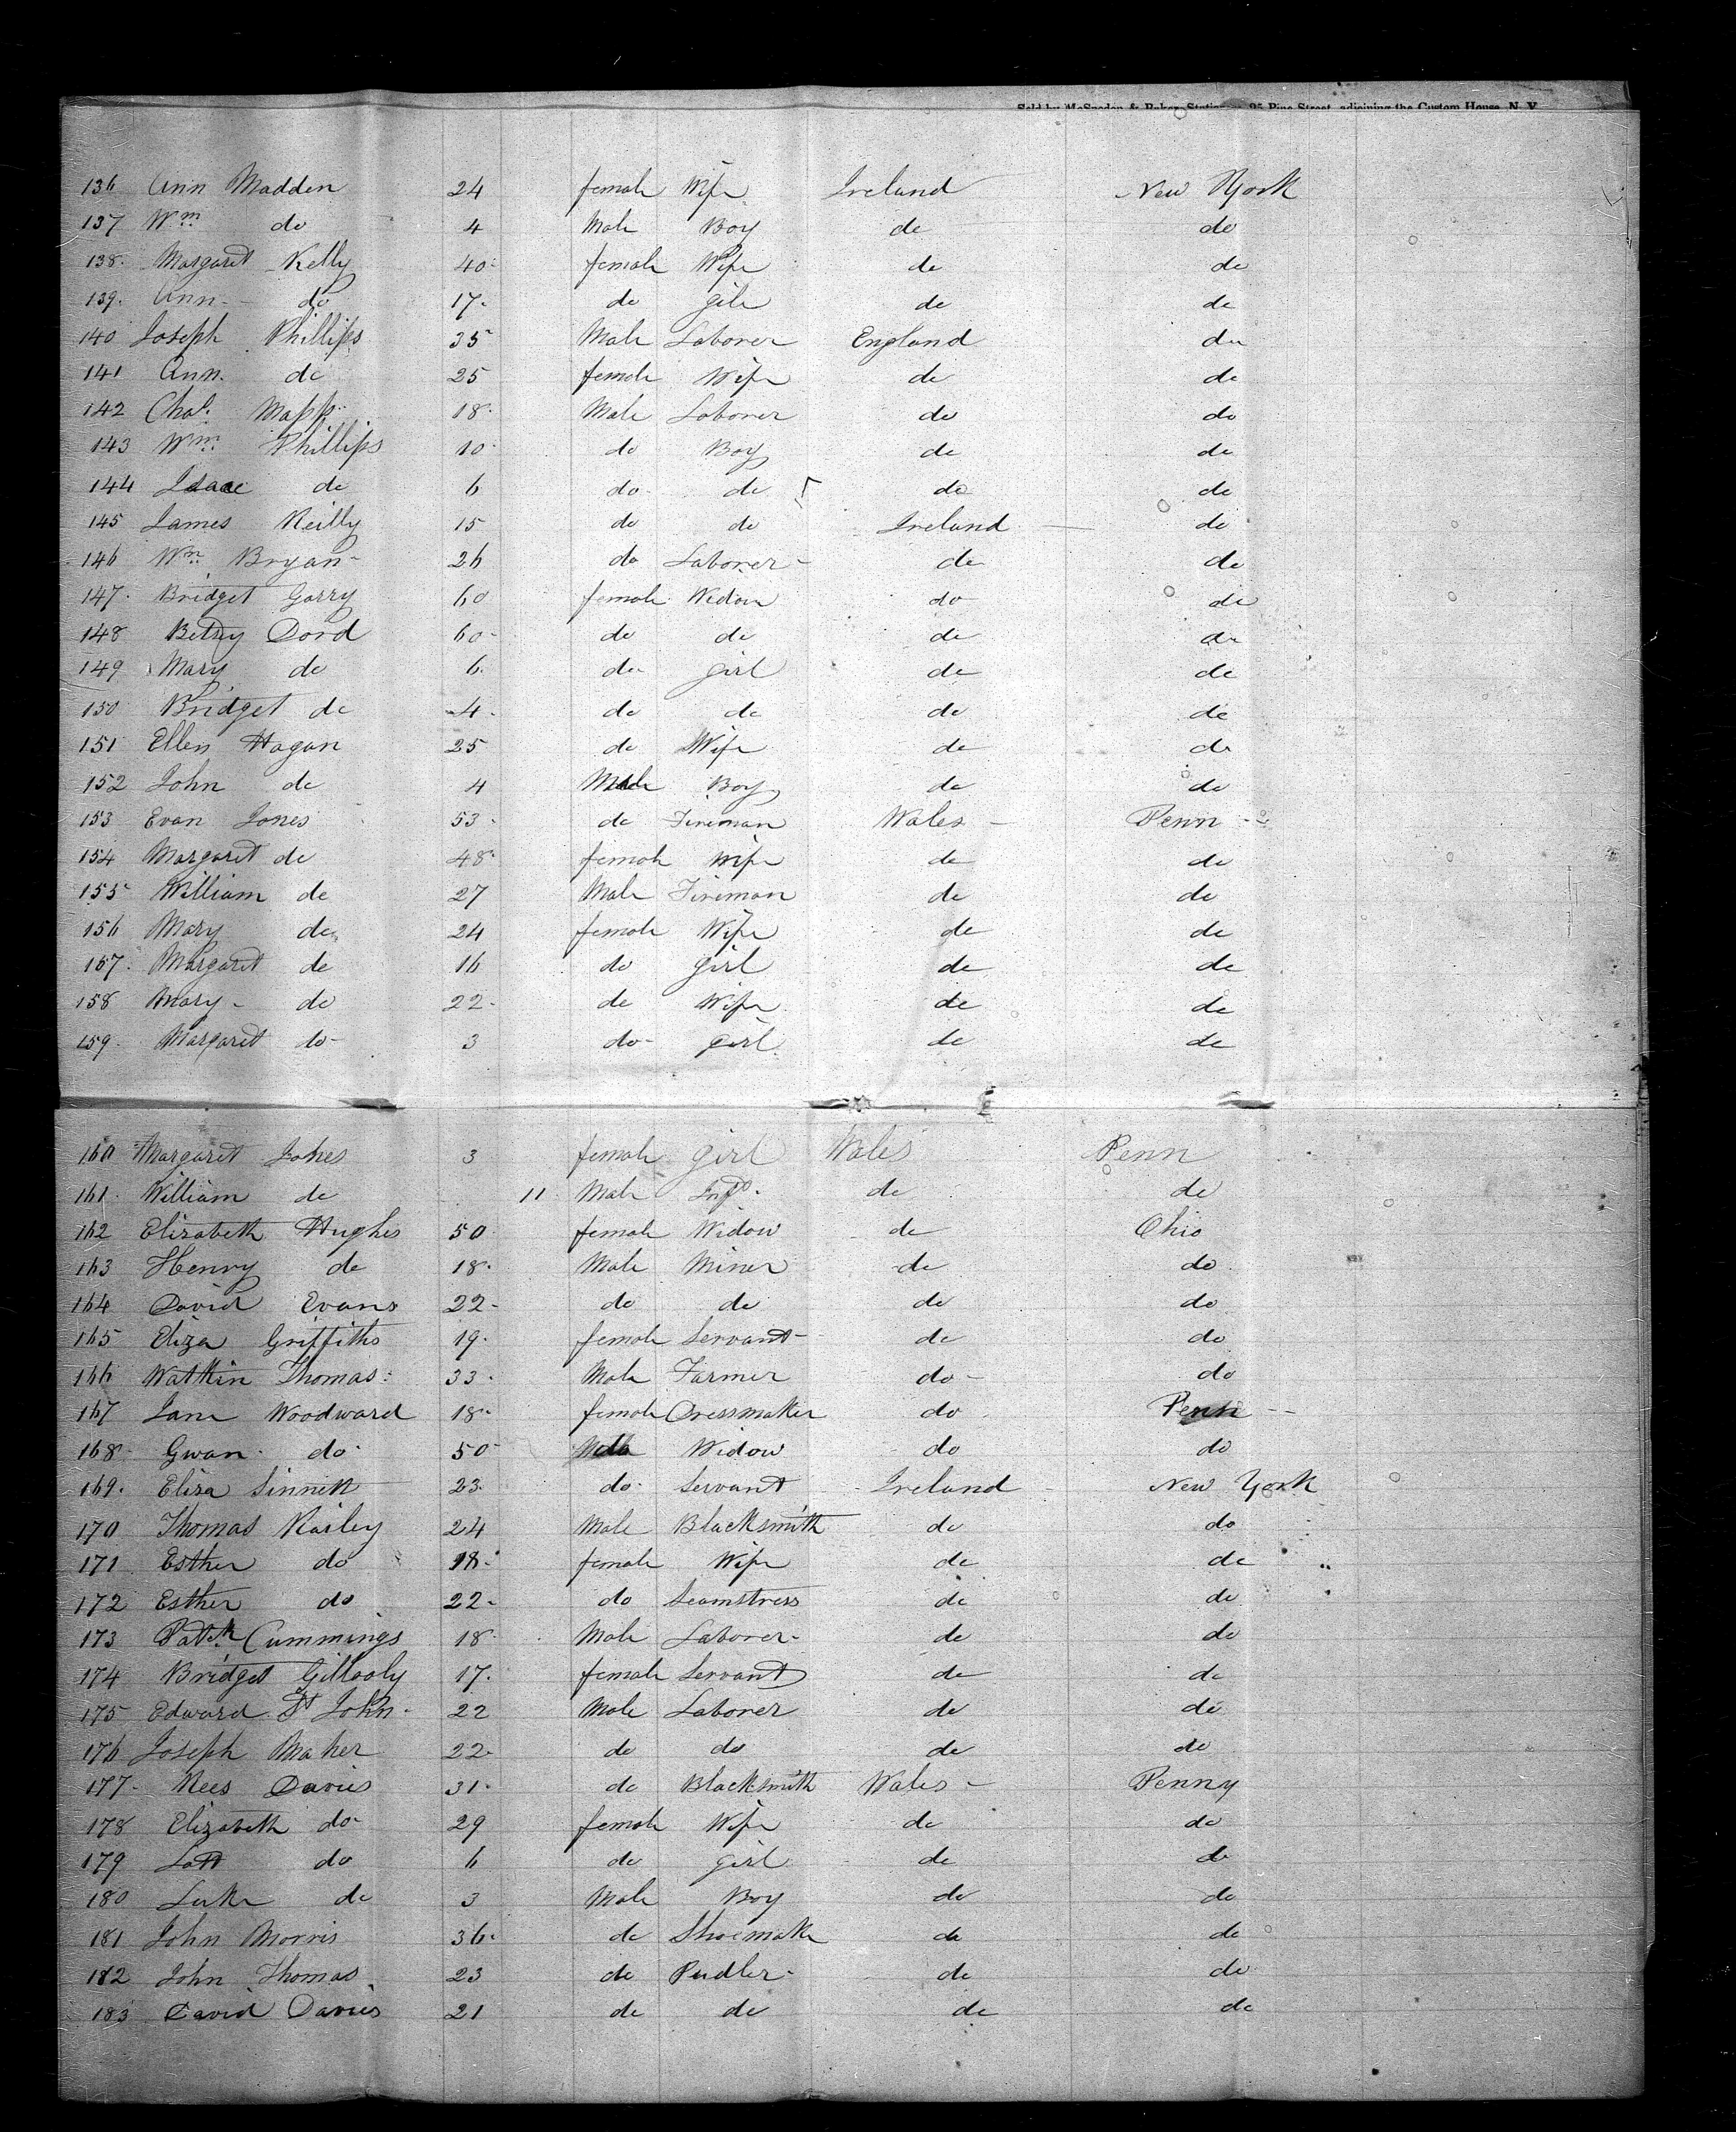 Sold by McSpedon & Baker, Stationers, 25 Pine Street, adjoining the Custom House, N. Y.
136 Ann Madden 24 female Wife Ireland New York
137 Wm do 4 Male Boy do do
138. Margaret Kelly 40 female Wife do do
139. Ann do 17. do girl do do
140 Joseph Phillips 35 Male Laborer England do
141 Ann. do 25 female Wife do do
142 Chas. Mapp 18. Male Laborer do do
143 Wm Phillips 10 do Boy do do
144 Isaac do 6 do do do do
145 James Reilly 15 do do Ireland do
146 Wm Bryan 26 do Laborer do do
147. Bridget Garry 60 female Widow do do
148 Betsy Dord 60 do do do do
149 Mary do 6. do girl do do
150 Bridget do 4 do do do do
151 Ellen Hagan 25 do Wife do do
152 John do 4 Male Boy do do
153 Evan Jones 53 do Fireman Wales Penn
154 Margaret do 48 female Wife do do
155 William do 27 Male Fireman do do
156 Mary do 24 female Wife do do
167. Margaret do 16 do girl do do
158 Mary do 22 do Wife do do
159. Margaret do 3 do girl do do
160 Margaret Jones 3 female girl Wales Penn
161. William do 11 Male Inft. do do
162 Elizabeth Hughes 50 female Widow do Ohio
163 Henry do 18. Male Miner do do
164 David Evans 22 do do do do
165 Eliza Griffiths 19. female Servant do do
166 Watkin Thomas 33. Male Farmer do do
167 Jane Woodward 18 female Dressmaker do Penn
168 Gwan do 50 Male Widow do do
169. Eliza Sinnett 23 do Servant Ireland New York
170 Thomas Raily 24 Male Blacksmith do do
171 Esther do 18. female Wife do do
172 Esther do 22 do Seamstress do do
173 Patk Cummings 18 Male Laborer do do
174 Bridget Gillooly 17. female Servant do do
175 Edward St John 22 Male Laborer do do
176 Joseph Maher 22 do do do do
177. Rees Davies 31. do Blacksmith Wales Penny
178 Elizabeth do 29 female Wife do do
179 Lott do 6 do girl do do
180 Luke do 3 Male Boy do do
181 John Morris 36. do Shoemaker do do
182 John Thomas 23 do Pudler do do
183 David Davies 21 do do do do